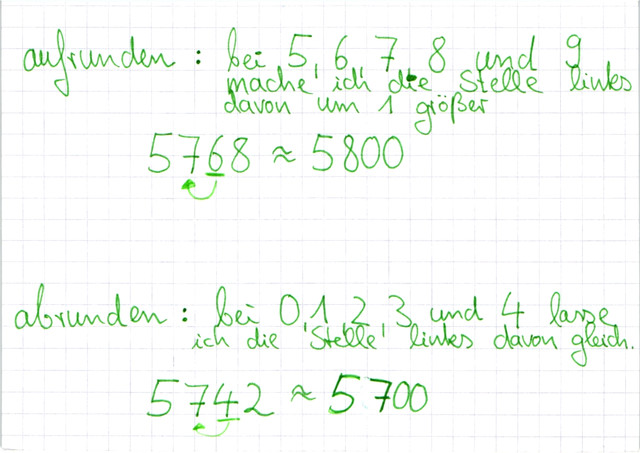 aufrunden : bei 5, 6, 7, 8 und 9
mache ich die Stelle links
davon um 1 größer
5768 ≈ 5800
abrunden : bei 0, 1, 2, 3 und 4 lasse
ich die Stelle links davon gleich.
5742 ≈ 5700